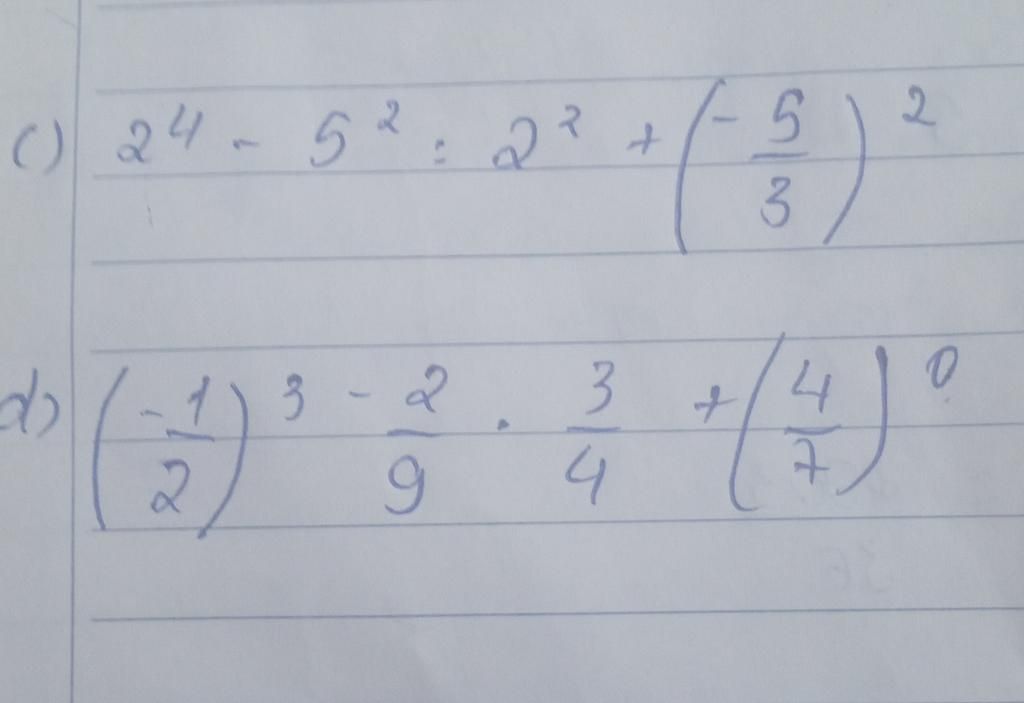 c) 2⁴ - 5² : 2² + (-5/3)²
d) (-1/2)³ - 2/9 · 3/4 + (4/7)⁰